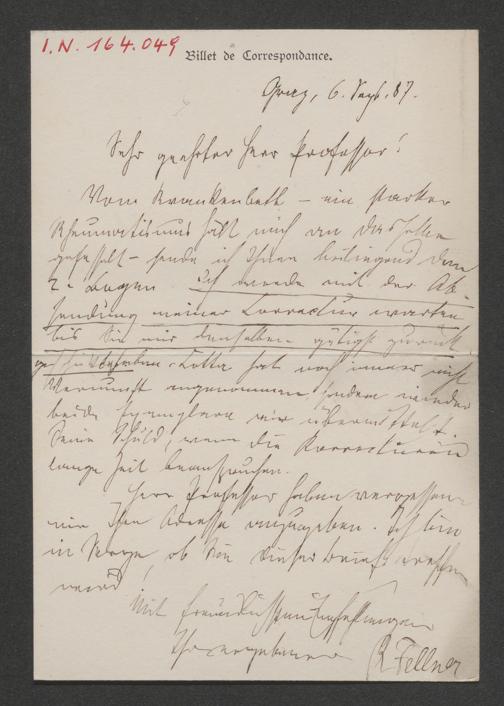 I.N. 164.049
Billet de Correspondance.
Graz, 6. Sept. 87.
Sehr geehrter Herr Professor!
Vom Krankenbett – ein starker
Rheumatismus hält mich an dasselbe
gefesselt – sende ich Ihnen beiliegend den
2. Bogen. Ich werde mit der Ab-
sendung meiner Correctur warten
bis Sie mir denselben gütigst zurück
geschickt haben. Cotta hat noch immer nicht
Vernunft angenommen, sondern wieder
beide Exemplare mir übermittelt.
Seine Schuld, wenn die Correcturen
lange Zeit beanspruchen.
Herr Professor haben vergessen
mir Ihre Adresse anzugeben. Ich bin
in Sorge, ob Sie dieser Brief treffen
wird!
Mit freundlichsten Empfehlungen
Ihr ergebener
R Fellner